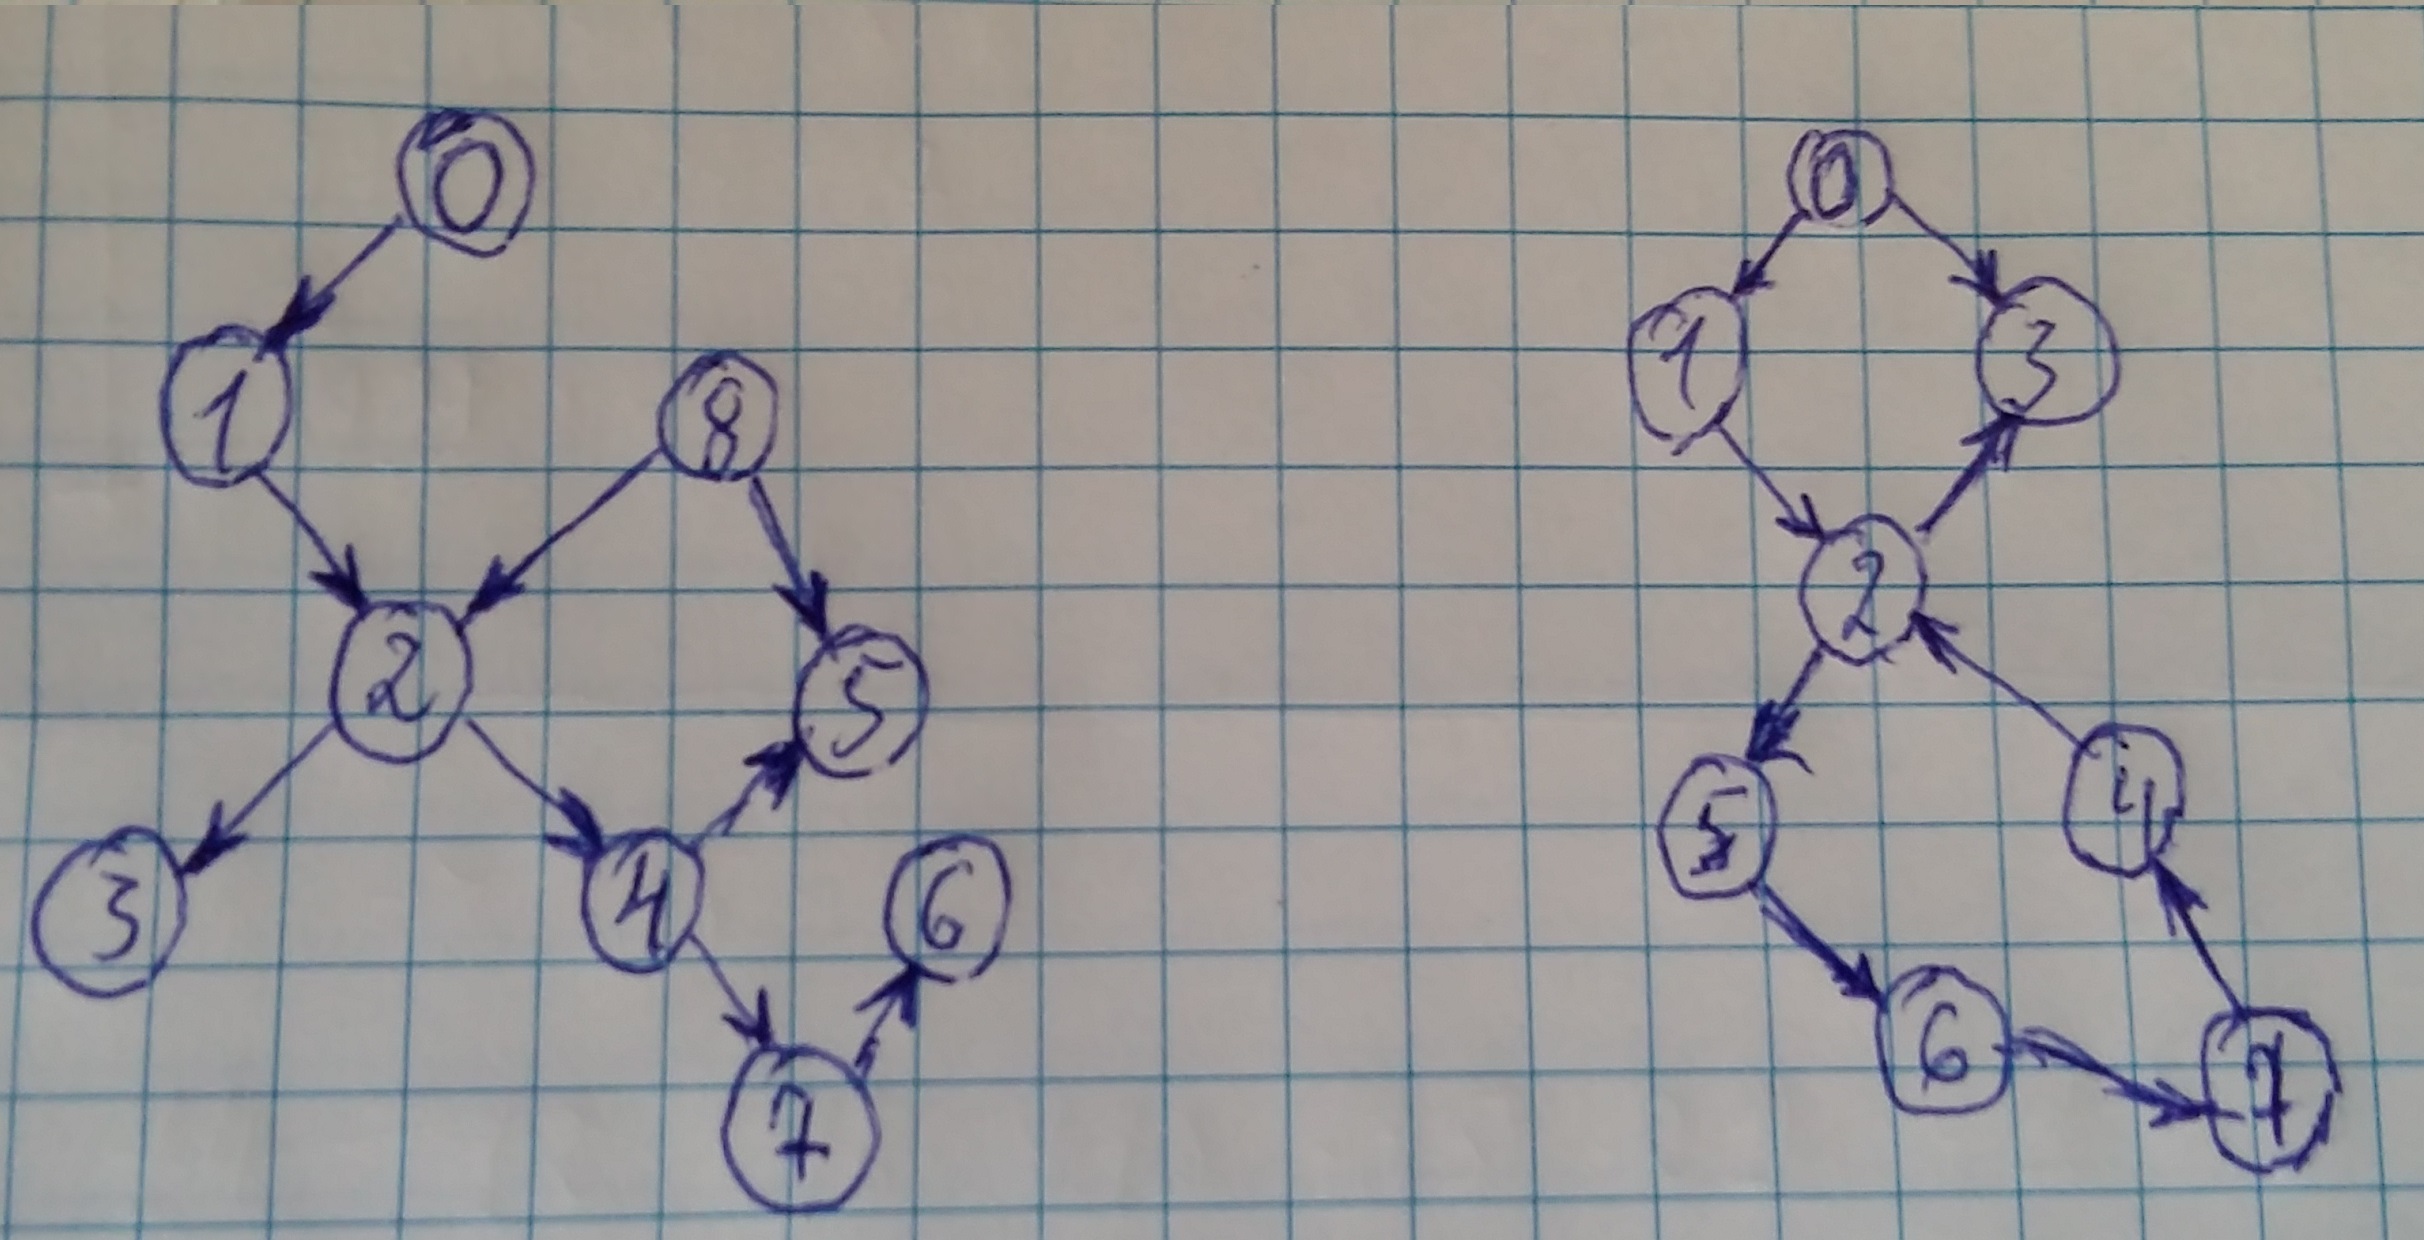 0
1
8
2
5
3
4
6
7
0
1
3
2
5
4
6
7